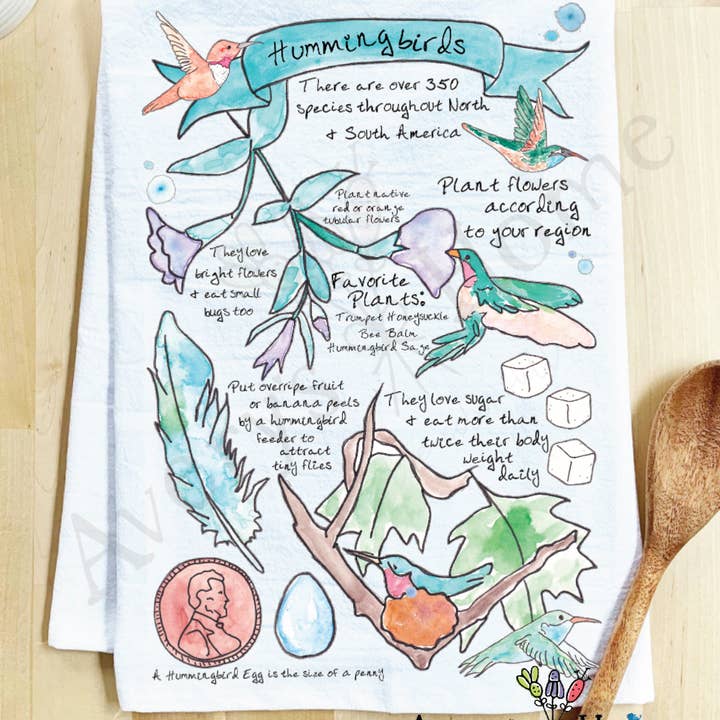 Hummingbirds
There are over 350
species throughout North
& South America
Plant native
red or orange
tubular flowers
Plant flowers
according
to your region
They love
bright flowers
& eat small
bugs too
Favorite
Plants:
Trumpet Honeysuckle
Bee Balm
Hummingbird Sage
Put overripe fruit
or banana peels
by a hummingbird
feeder to
attract
tiny flies
They love sugar
& eat more than
twice their body
weight
daily
A Hummingbird Egg is the size of a penny